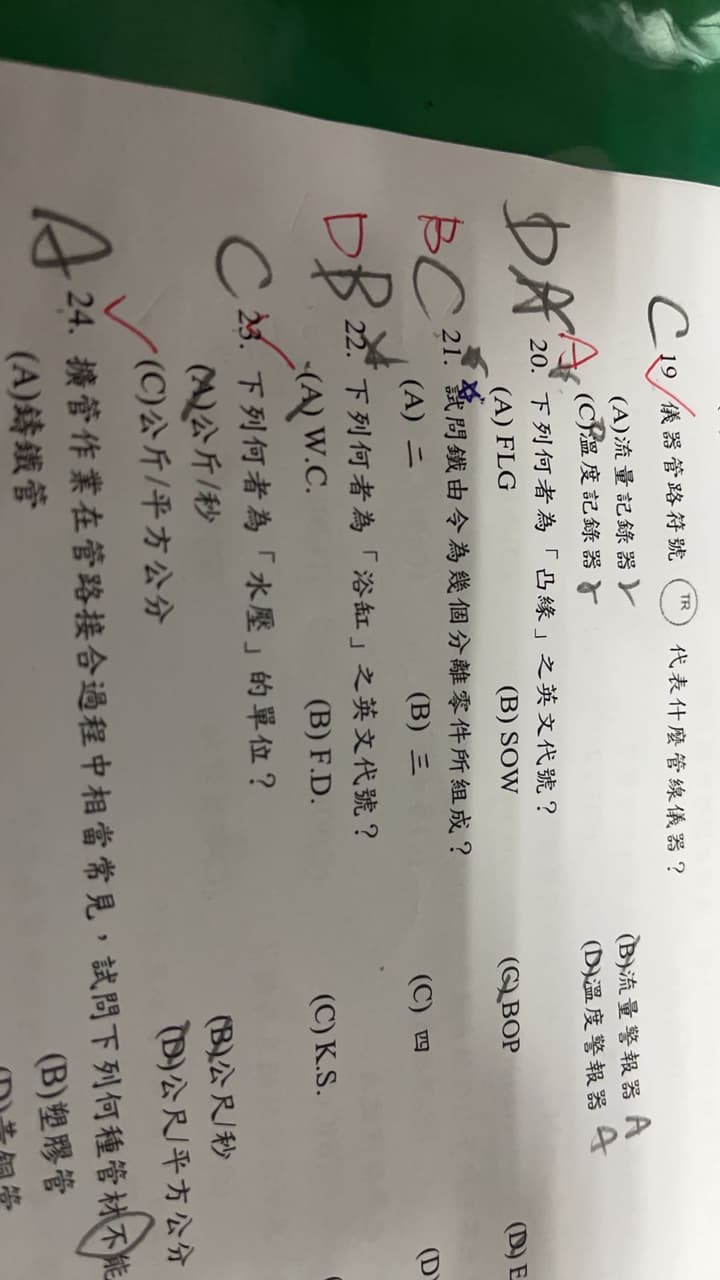 C 19 儀器管路符號 TR 代表什麼管線儀器？
(A)流量記錄器 r (B)流量警報器 A
(C)溫度記錄器 r (D)溫度警報器 A
D A A 20. 下列何者為「凸緣」之英文代號？
(A) FLG (B) SOW (C) BOP (D) E
B C 21. 試問鐵由令為幾個分離零件所組成？
(A) 二 (B) 三 (C) 四 (D)
D B 22. 下列何者為「浴缸」之英文代號？
(A) W.C. (B) F.D. (C) K.S. (
C 23. 下列何者為「水壓」的單位？
(A)公斤/秒 (B)公尺/秒
(C)公斤/平方公分 (D)公尺/平方公分
A 24. 擴管作業在管路接合過程中相當常見，試問下列何種管材不能
(A)鑄鐵管 (B)塑膠管